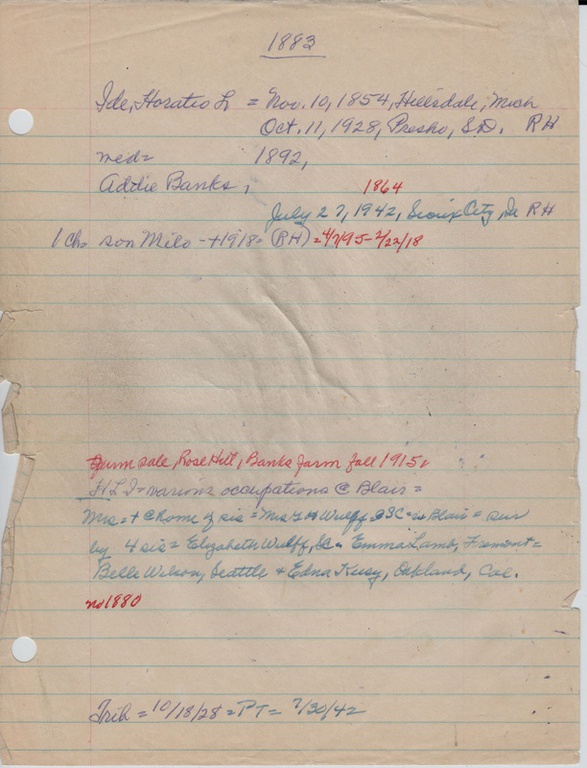 1883
Ide, Horatio L = Nov. 10, 1854, Hillsdale, Mich
Oct. 11, 1928, Presho, S.D. RH
med= 1892,
Addie Banks, 1864
July 27, 1942, Sioux City, Ia RH
1 Ch= son Milo - +1918= (RH) = 4/7/95- 2/22/18
Farm sale, Rose Hill, Banks farm fall 1915.
HLI = various occupations @ Blair =
Mrs = + @ home of sis = Mrs G H Wulff SC = in Blair = sur
by 4 sis = Elizabeth Wulff, SC = Emma Lamb, Fremont =
Belle Wilson, Seattle + Edna Kusy, Oakland, Cal.
no 1880
Trib = 10/18/28 = PT = 7/30/42